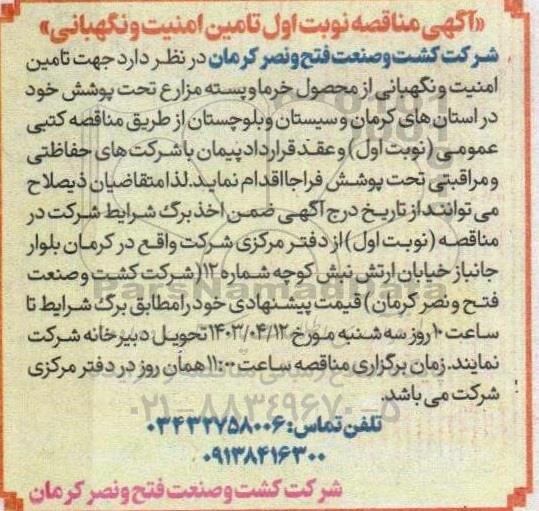 «آگهی مناقصه نوبت اول تامین امنیت و نگهبانی»
شرکت کشت و صنعت فتح و نصر کرمان در نظر دارد جهت تامین
امنیت و نگهبانی از محصول خرما و پسته مزارع تحت پوشش خود
در استان های کرمان و سیستان و بلوچستان از طریق مناقصه کتبی
عمومی (نوبت اول) و عقد قرارداد پیمان با شرکت های حفاظتی
و مراقبتی تحت پوشش فراجا اقدام نماید. لذا متقاضیان ذیصلاح
می توانند از تاریخ درج آگهی ضمن اخذ برگ شرایط شرکت در
مناقصه (نوبت اول) از دفتر مرکزی شرکت واقع در کرمان بلوار
جانباز خیابان ارتش نبش کوچه شماره ۱۲ (شرکت کشت و صنعت
فتح و نصر کرمان) قیمت پیشنهادی خود را مطابق برگ شرایط تا
ساعت ۱۰ روز سه شنبه مورخ ۱۴۰۳/۰۴/۱۲ تحویل دبیرخانه شرکت
نمایند. زمان برگزاری مناقصه ساعت ۱۱:۰۰ همان روز در دفتر مرکزی
شرکت می باشد.
۰۲۱-۸۸۳۴۹۶۷۰-۵
تلفن تماس: ۰۳۴۳۲۷۵۸۰۰۶
۰۹۱۳۸۴۱۶۳۰۰
شرکت کشت و صنعت فتح و نصر کرمان
ParsNamadData